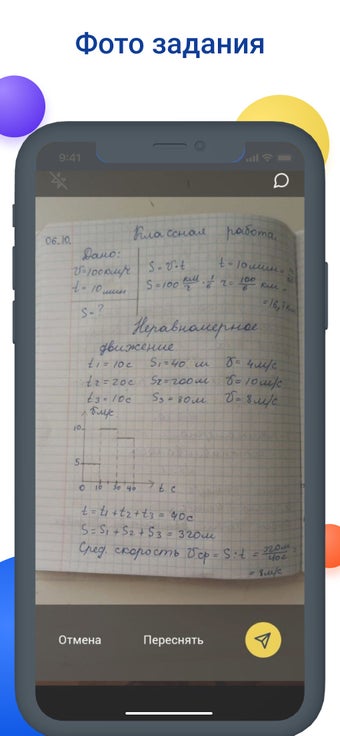 Фото задания
9:41
06.10. Классная работа.
Дано:
v=100км/ч S=v·t t=10мин=
t=10мин S=100 км/ч · 1/6 ч = 100/6 км=
S-?
Неравномерное
движение
t₁=10с S₁=40 м v=4м/с
t₂=20с S₂=200м v=10м/с
t₃=10с S₃=80м v=8м/с
v м/с
10
5
0 10 30 40 t, с
t=t₁+t₂+t₃=40с
S=S₁+S₂+S₃=320м
Сред. скорость vср=S:t=320м/40с=
=8м/с
Отмена Переснять